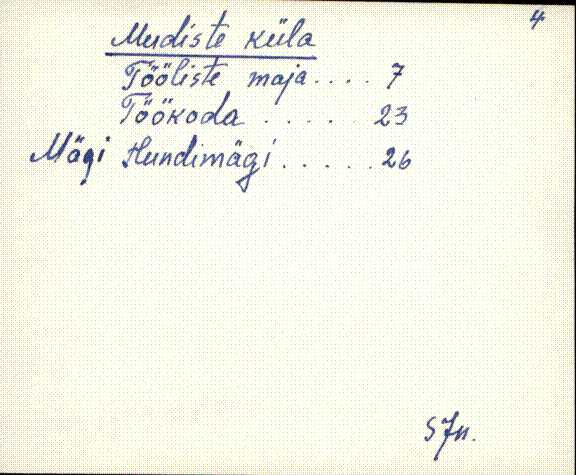 4
Mudiste küla
Tööliste maja.... 7
Töökoda ..... 23
Mägi Hundimägi..... 26
57n.